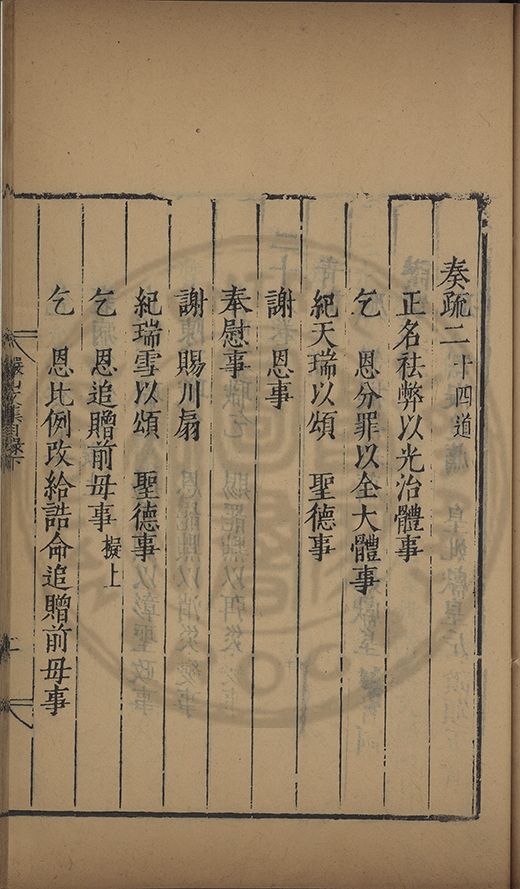 奏疏二十四道
正名祛弊以光治體事
乞　恩分罪以全大體事
紀天瑞以頌　聖德事
謝　恩事
奉慰事
謝　賜川扇
紀瑞雪以頌　聖德事
乞　恩追贈前母事擬上
乞　恩比例改給誥命追贈前母事